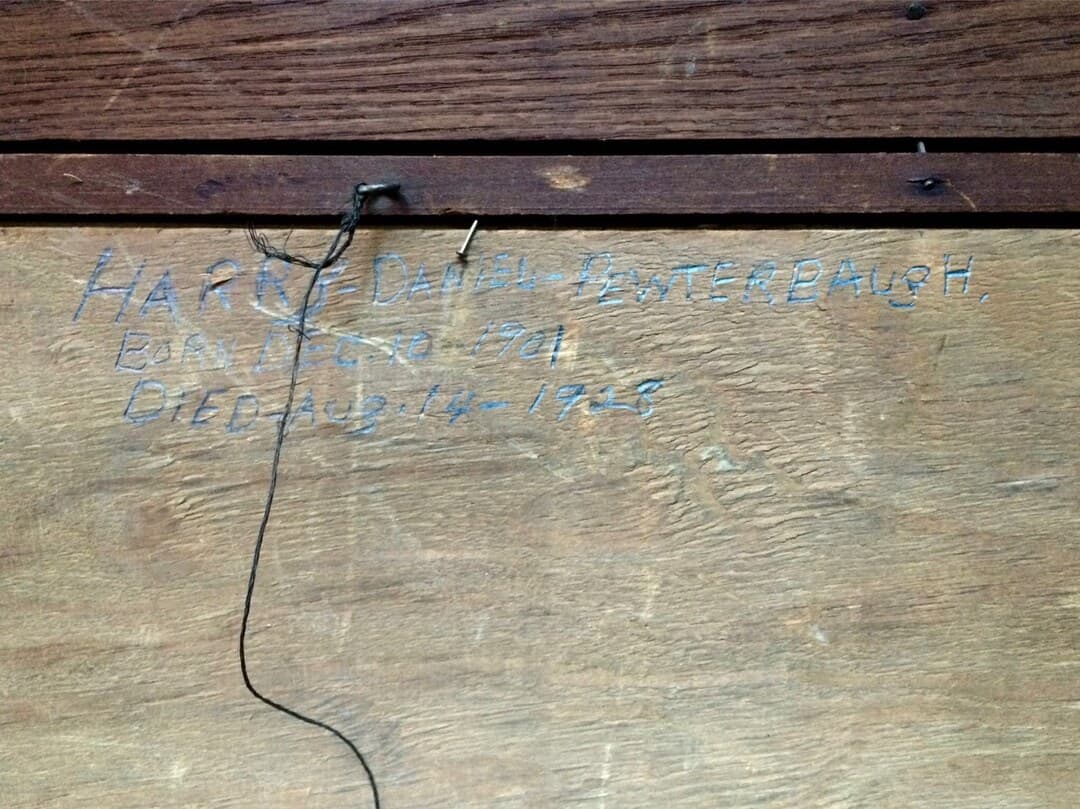 HARRY-DANIEL-PEWTERBAUGH.
BORN DEC. 10 1901
DIED-AUG. 14-1928